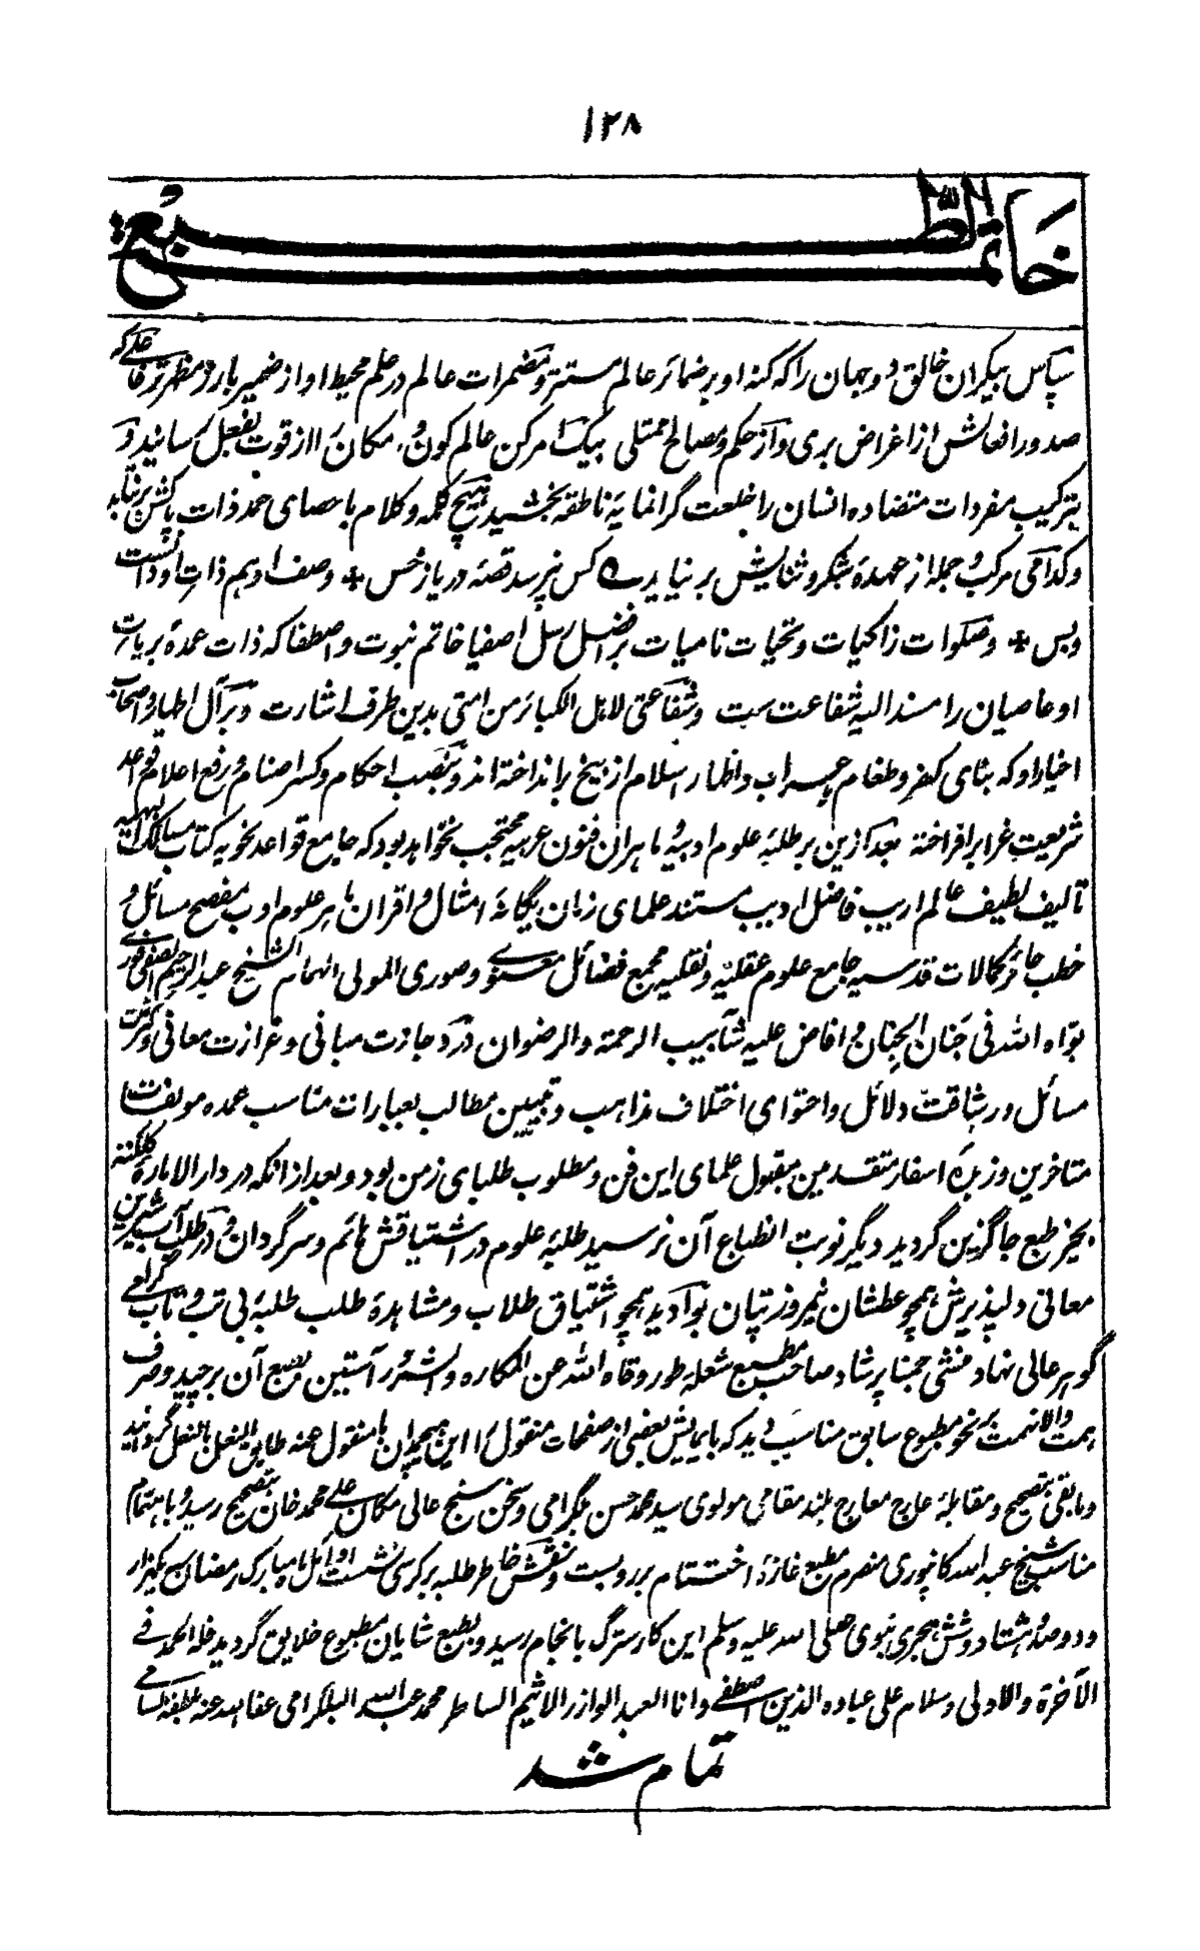 ۱۲۸
خاتمة الطبع
سپاس بیکران خالق دو جهان را که کنه او بر ضمائر عالم مستتر و مضمرات عالم در علم محیط او از ضمیر بارز مظهر تر فاعلی که
صدور افعالش از اغراض بری و از حکم و مصالح ممتلی بیک امر کن عالم کون و مکان را از قوت بفعل رسانید و
بترکیب مفردات متضاده انسان را خلعت گرانمایهٔ ناطقه بخشید هیچ کلمه و کلام باحصای حمد ذات پاکش بر نیاید
و کدامی مرکب و جمله از عهدهٔ شکر و ثنایش بر نیاید ے کس نپرسد قصهٔ دریا ز خس * وصف او هم ذات او دانست
و بس * و صلوات زاکیات و تحیات نامیات بر افضل رسل اصفیا خاتم نبوت و اصطفا که ذات عمدهٔ بریات
او عاصیان را مسند الیه شفاعت ست و شفاعتی لاهل الکبائر من امتی بدین طرف اشارت و بر آل اطهار و اصحاب
اخیار او که بنای کفر و طغام بهر اب و اظهار اسلام از بیخ برانداخته اند و بنصب احکام و کسر اصنام و رفع اعلام قواعد
شریعت غرا بر افراخته بعد ازین بر طلبهٔ علوم ادبیه و ماهران فنون عربیه محتجب نخواهد بود که جامع قواعد نحویه کتاب مسالک بهیه
تالیف لطیف عالم اریب فاضل ادیب مستند علمای زمان یگانهٔ امثال و اقران ماهر علوم ادب مفصح مسائل و
خطب حائز کمالات قدسیه جامع علوم عقلیه و نقلیه مجمع فضائل معنوی و صوری المولی الهمام الشیخ عبدالرحیم الصفی فوری
بواه الله فی جنان الجنان و افاض علیه شآبیب الرحمة و الرضوان در وجازت مبانی و غزارت معانی و کثرت
مسائل و رشاقت دلائل و احتوای اختلاف مذاهب و تبیین مطالب بعبارات مناسب عمده مولفات
متاخرین و زبدهٔ اسفار متقدمین مقبول علمای این فن و مطلوب طلبای زمن بود و بعد از انکه در دار الامارة کلکته
بحیز طبع جاگزین گردید دیگر نوبت انطباع آن نرسید طلبهٔ علوم در اشتیاقش هائم و سرگردان و در طلب آب شیرین
معانی دلپذیرش همچو عطشان نیمروز تپان بوادیه همچو اشتیاق طلاب و مشاهدهٔ طلب طلبهٔ بی تب و تاب گرامی
گوهر عالی نهاد منشی جمنا پرشاد صاحب مطبع شعله طور وقاه الله عن المکاره و الشرور آستین بطبع آن برچید و صرف
همت والانهمت بر نحو مطبوع سابق مناسب دید که بایمایش بعضی از صفحات منقول را این هیچمدان با منقول عنه طابق النعل بالنعل گردانید
و مابقی بتصحیح و مقابلهٔ عارج معارج بلند مقامی مولوی سید محمد حسن بلگرامی و سخن سنج عالی مکان علی محمد خان بتصحیح رسید و باهتمام
مناسب شیخ عبد الله کانپوری منصرم مطبع غازهٔ اختتام بر رو بست و نقش خاطر طلبه بر کرسی نشست اوائل ماه مبارک رمضان سن یکهزار
و دو صد و هشتاد و شش هجری نبوی صلی الله علیه وسلم این کار سترگ بانجام رسید و بطبع شایان مطبوع خلایق گردید فله الحمد فی
الآخرة و الاولی و سلام علی عباده الذین اصطفی و انا العبد الوازر الاثیم الساطر محمد عبد الله البلکرامی عفا الله عنه بلطفه السامی
تمام شد